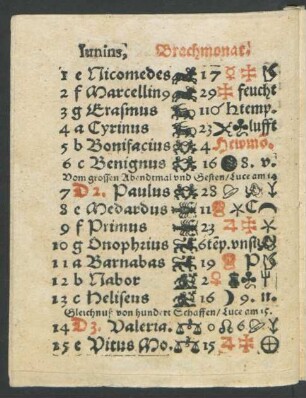 Iunius, Brachmonat.
1 e Nicomedes 17
2 f Marcellin9 29 feucht
3 g Erasmus 11
4 a Cyrinus 23 lufft
5 b Bonifacius 4 Hewmo.
6 c Benignus 16 8. v.
Vom grossen Abendtmal vnd Gesten/ Luce am 14
7 D 2. Paulus 28
8 e Medardus 11
9 f Primus 23
10 g Onophrius 6
11 a Barnabas 19
12 b Nabor 2
13 c Heliseus 16 9. n.
Gleichnuß von hundert Schaffen/ Luce am 15.
14 D 3. Valeria. 0
15 e Vitus Mo. 15